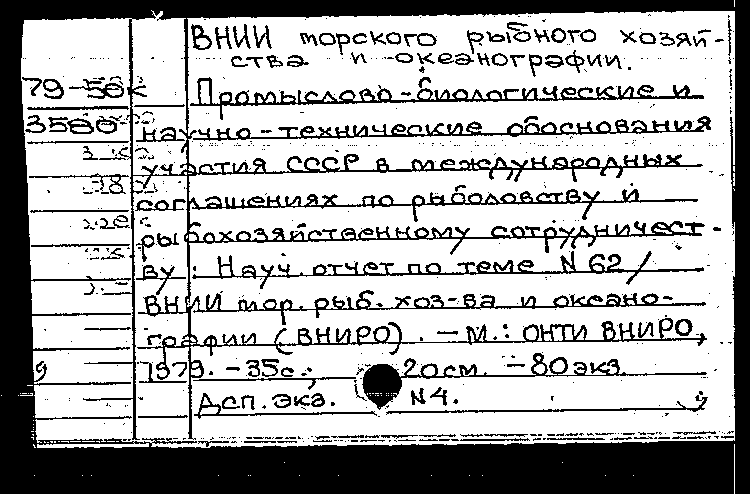 ВНИИ морского рыбного хозяй-
ства и океанографии.
79-56к
3580
Промыслово-биологические и
научно-технические обоснования
участия СССР в международных
соглашениях по рыболовству и
рыбохозяйственному сотрудничест-
ву: Науч. отчет по теме N 62/
ВНИИ мор. рыб. хоз-ва и океано-
графии (ВНИРО). — М.: ОНТИ ВНИРО,
1979. - 35с.; 20см. - 80экз.
Дсп. экз. N4.